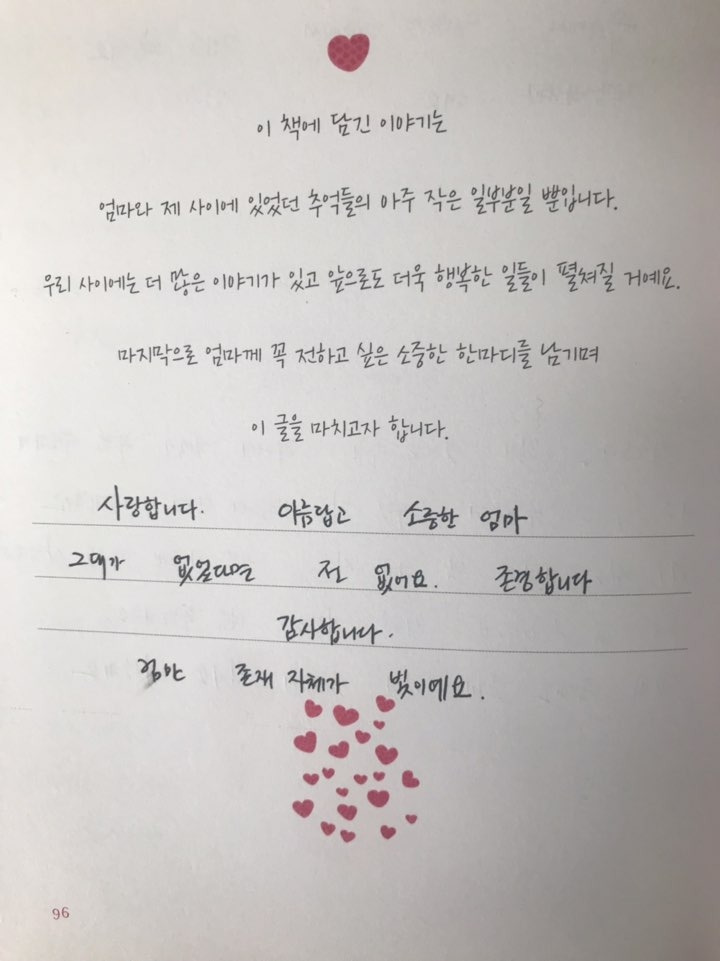 이 책에 담긴 이야기는
엄마와 제 사이에 있었던 추억들의 아주 작은 일부분일 뿐입니다.
우리 사이에는 더 많은 이야기가 있고 앞으로도 더욱 행복한 일들이 펼쳐질 거예요.
마지막으로 엄마께 꼭 전하고 싶은 소중한 한마디를 남기며
이 글을 마치고자 합니다.
사랑합니다. 아름답고 소중한 엄마
그대가 없었다면 전 없어요. 존경합니다
감사합니다.
엄만 존재 자체가 빛이예요.
96